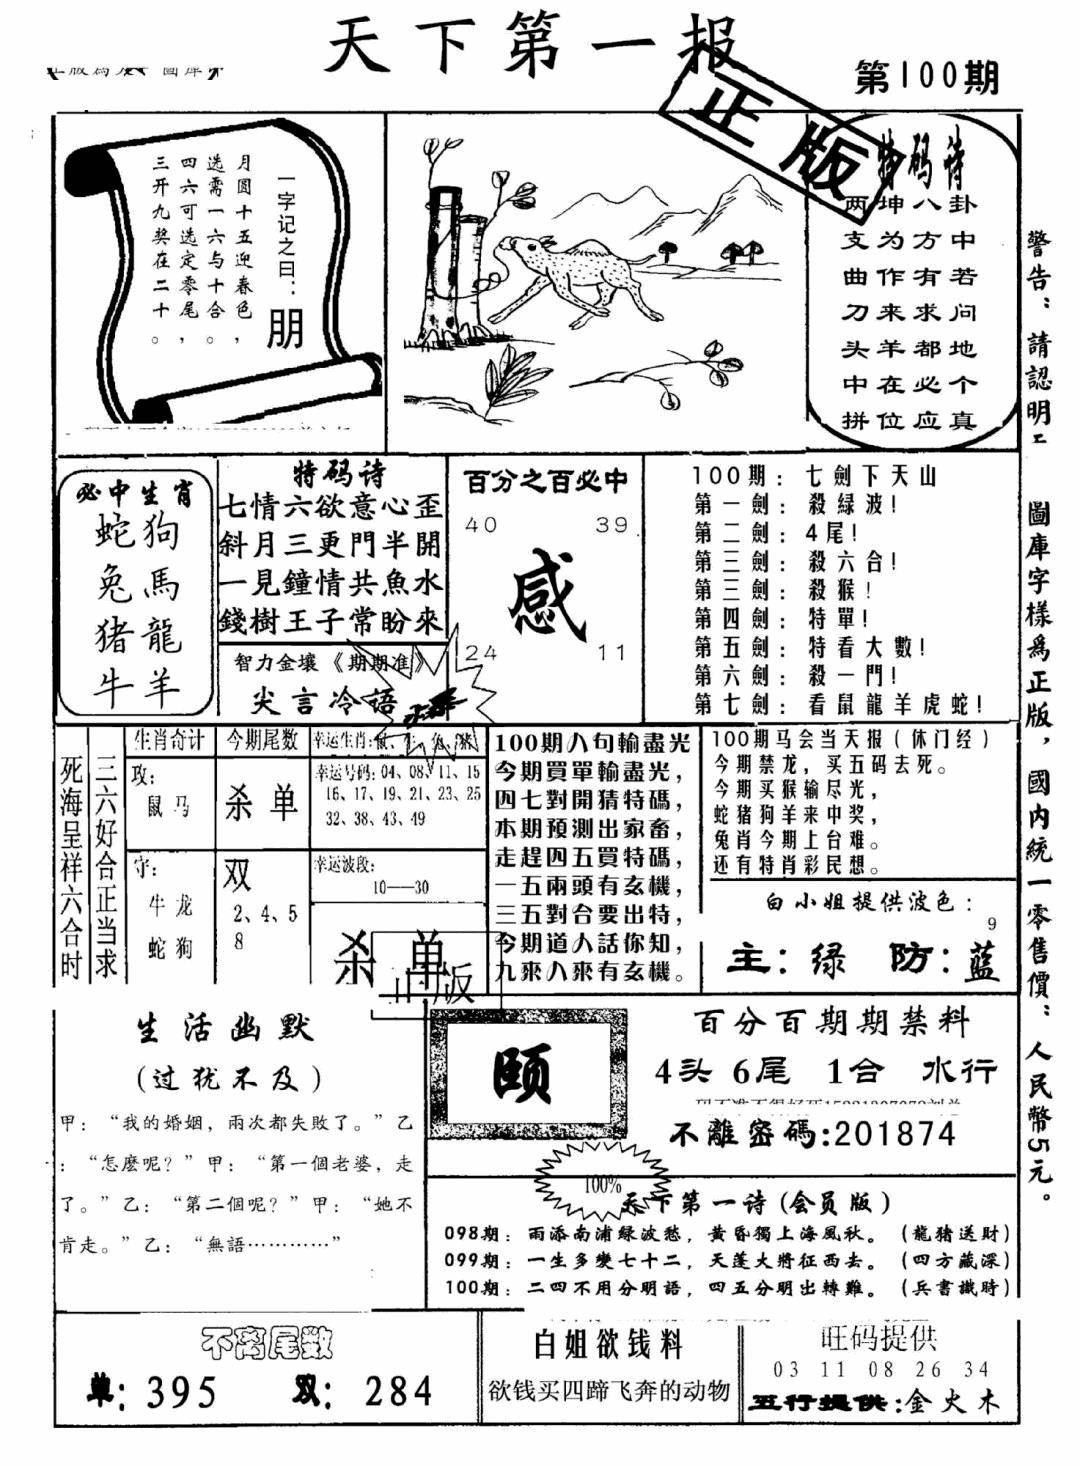 天下第一报
第100期
正版
一字记之曰：朋
月圆十五迎春色，
选需一六与十合。
四六可选定零尾，
三开九奖在二十。
特码诗
两坤八卦
支为方中
曲作有若
刀来求问
头羊都地
中在必个
拼位应真
必中生肖
蛇狗
兔馬
猪龍
牛羊
特码诗
七情六欲意心歪
斜月三更門半開
一見鐘情共魚水
錢樹王子常盼來
智力金壤《期期准》
尖言冷語
百分之百必中
40 39
感
24 11
100期：七劍下天山
第一劍：殺綠波！
第二劍：4尾！
第三劍：殺六合！
第三劍：殺猴！
第四劍：特單！
第五劍：特看大數！
第六劍：殺一門！
第七劍：看鼠龍羊虎蛇！
警告：請認明
圖庫字樣爲正版，國内統一零售價：人民幣5元。
死海呈祥六合时
三六好合正当求
生肖奇计
攻：
鼠马
守：
牛龙
蛇狗
今期尾数
杀单
双
2、4、5
8
幸运生肖:
幸运号码: 04、08、11、15
16、17、19、21、23、25
32、38、43、49
幸运波段:
10——30
杀单
正版
100期八句輸盡光
今期買單輸盡光，
四七對開猜特碼，
本期預測出家畜，
走趕四五買特碼，
一五兩頭有玄機，
三五對合要出特，
今期道人話你知，
九來八來有玄機。
100期马会当天报（休门经）
今期禁龙，买五码去死。
今期买猴输尽光，
蛇猪狗羊来中奖，
兔肖今期上台难。
还有特肖彩民想。
白小姐提供波色：
9
主：绿 防：蓝
生活幽默
（过犹不及）
甲：“我的婚姻，兩次都失敗了。”乙
：“怎麽呢？”甲：“第一個老婆，走
了。”乙：“第二個呢？”甲：“她不
肯走。”乙：“無語…………”
颐
百分百期期禁料
4头 6尾 1合 水行
不離密碼:201874
100%
天下第一诗(会员版)
098期：雨添南浦绿波愁，黄昏獨上海風秋。（龍猪送財）
099期：一生多變七十二，天蓬大將征西去。（四方藏深）
100期：二四不用分明語，四五分明出轉難。（兵書識時）
不离尾数
单: 395 双: 284
白姐欲钱料
欲钱买四蹄飞奔的动物
旺码提供
03 11 08 26 34
五行提供:金火木